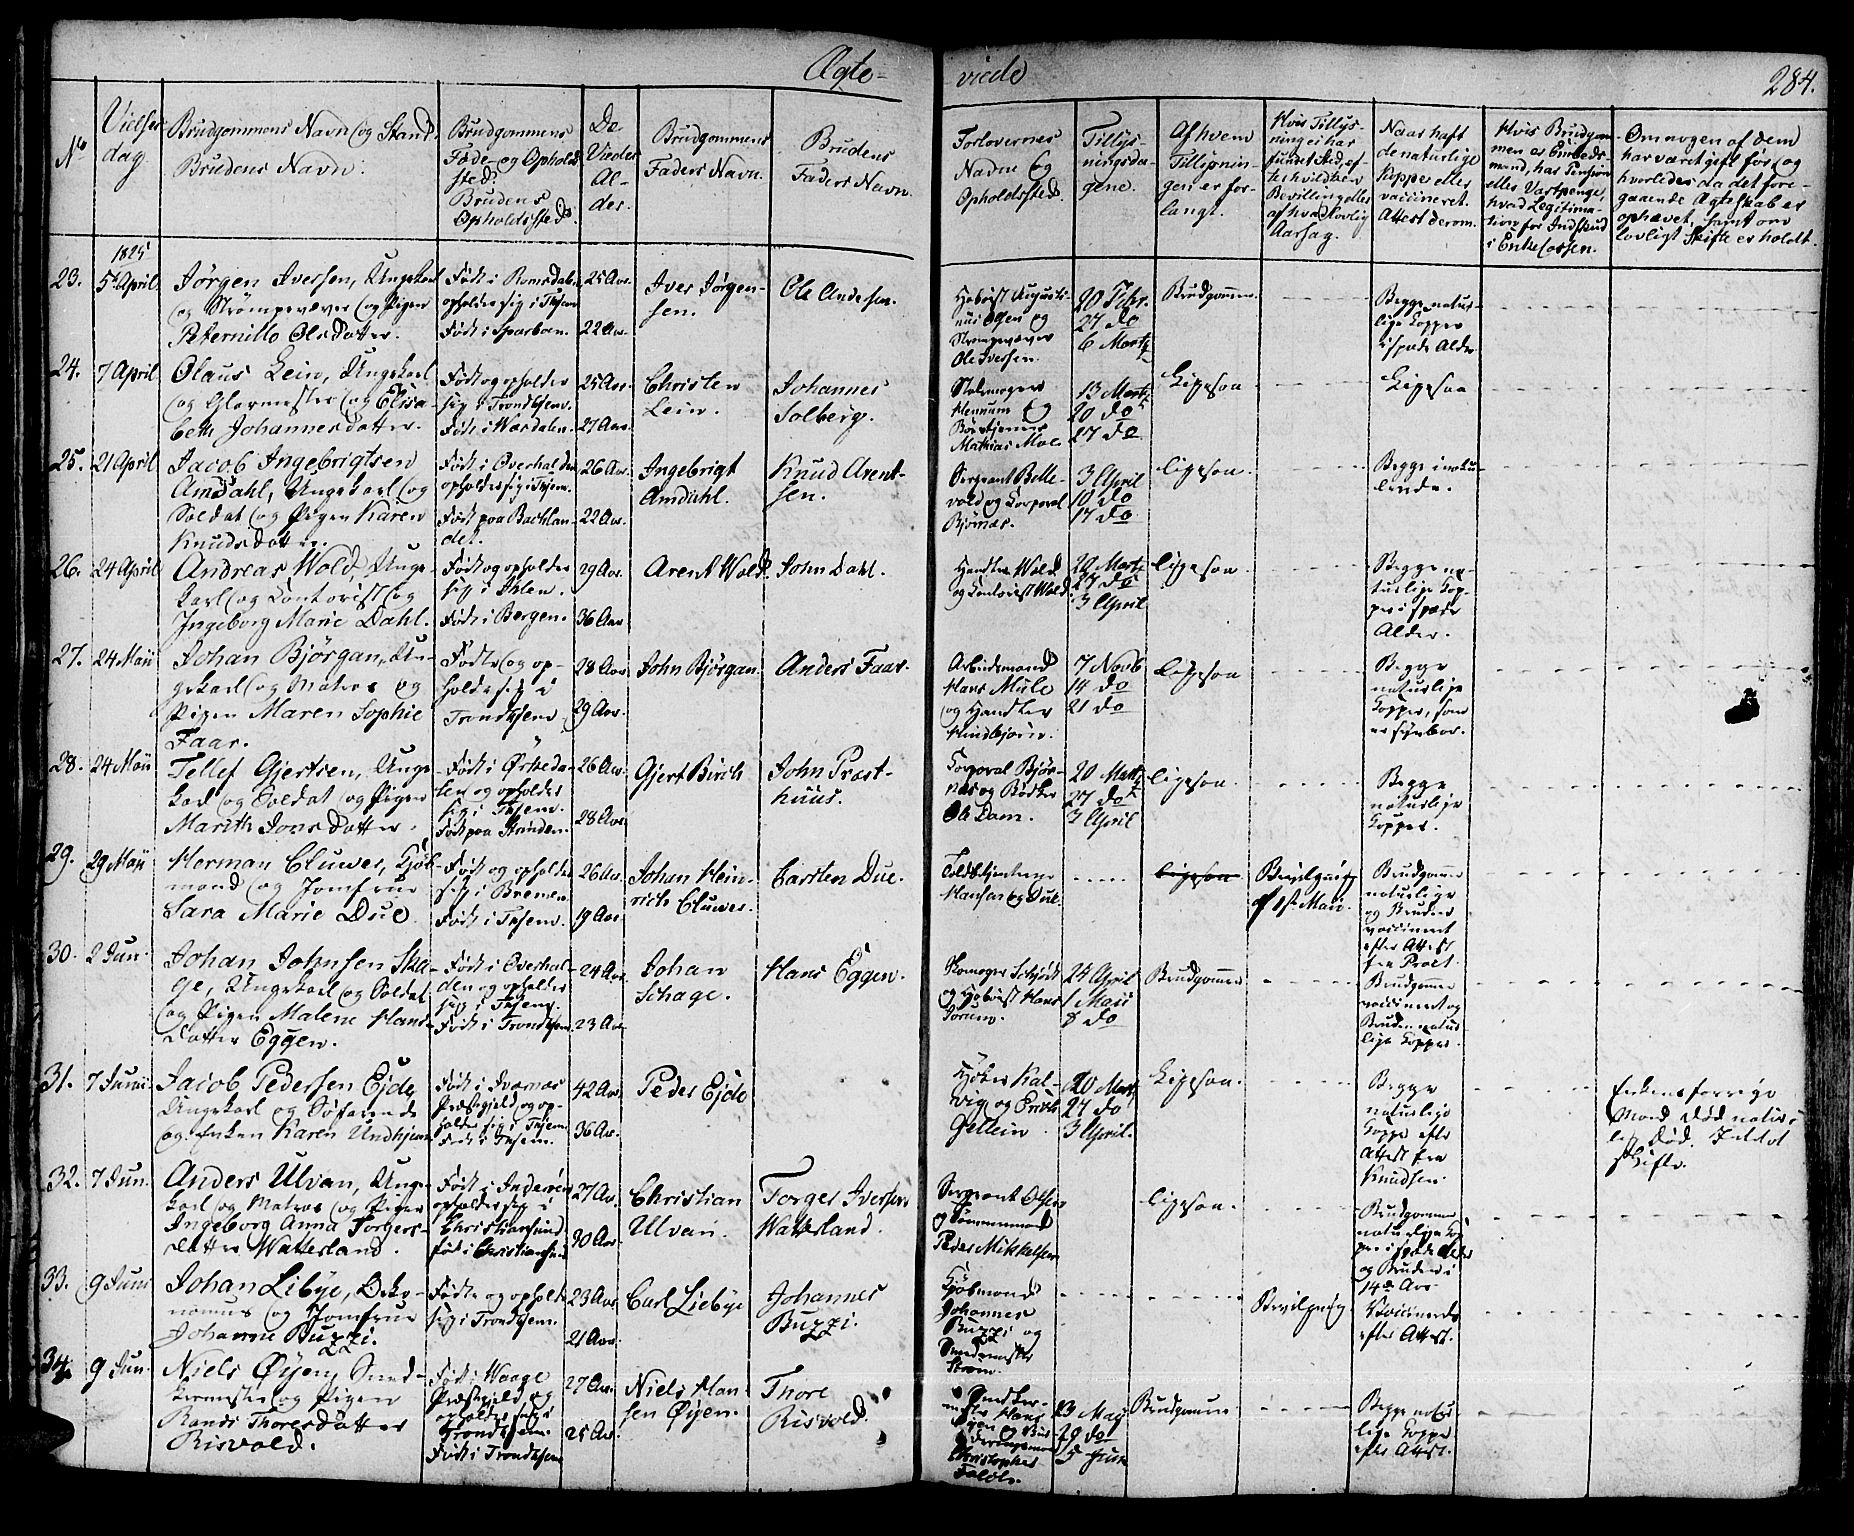 Ægte-
viede
284.
No
Vielses
dag
Brudgommens Navn og Stand
Brudens Navn.
Brudgommens
Føde- og Opholds
sted
Brudens
Opholdssted.
De
Viedes
Al-
der.
Brudgommens
Faders Navn.
Brudens
Faders Navn.
Forlovernes
Navn og
Opholdssted.
Tillys-
ningsda-
gene.
Af hvem
Tillysnin-
gen er for-
langt.
Hvis Tillys-
ning ei har
fundet sted, ef-
ter hvilken
Bevilling eller
af hvad lovlig
Aarsag.
Naar haft
de naturlige
Kopper eller
vaccineret.
Attest derom.
Hvis Brudgom-
men er Embeds-
mand, har Pension
eller Vartpenge,
hvad Legitima-
tion for Indskud
i Enkecassen.
Om nogen af dem
har været gift før og
hvorledes da det fore-
gaaende Ægteskab er
ophævet, samt om
lovligt Skifte er holdt.
1825
23. 5te April
Jørgen Iversen, Ungekarl
og Strømpevæver og Pigen
Peternille OlsDatter.
Født i Romsdalen
opholder sig i Thjem
Født i Sparboen.
25 Aar.
22 Aar.
Iver Jørgen-
sen.
Ole Andersen.
Hoboist Augusti-
nus Olsen og
Strømpevæver
Ole Iversen.
20 Febr.
27 do
6 Martz
Brudgommen
Begge natur-
lige Kopper
i spæde Alder
24. 7 April
Olaus Lein, Ungekarl
og Glarmester og Elisa-
beth Johannesdatter.
Født og opholder
sig i Trondhjem.
Født i Værdalen.
25 Aar.
27 Aar.
Christen
Lein.
Johannes
Solberg.
Skomager
Hennum og
Mathias Moe
13 Martz
20 do
27 do
Ligesaa
Ligesaa
25. 21 April
Jacob Ingebrigtsen
Amdahl, Ungekarl og
Soldat og Pigen Karen
KnudsDatter.
Født i Overhalden
opholder sig i Thjem.
Født paa Baklan-
det.
26 Aar.
22 Aar.
Ingebrigt
Amdahl.
Knud Arent-
sen.
Sergeant Belle-
vold og Corporal
Bjørnes.
3 April
10 do
17 do
Ligesaa.
Begge inoku-
lerede.
26. 24 April
Andreas Wold, Unge-
karl og Contorist og
Ingeborg Marie Dahl.
Født og opholder
sig i Ihlen.
Født i Bergen.
29 Aar.
36 Aar
Arent Wold.
John Dahl.
Handler Wold
og Contorist Wold.
20 Martz
27 do
3 April
Ligesaa.
Begge na-
turlige Kop-
per i spæde
Alder.
27. 24 Maii
Johan Bjørgan, Un-
gekarl og Matros og
Pigen Maren Sophie
Faar.
Fødte og op-
holder sig i
Trondhjem.
28 Aar
29 Aar.
John Bjørgan.
Anders Faar.
Arbeidsmand
Hans Mule
og Handler
Hindbjørn.
7 Novb
14 do
21 do
Ligesaa
Begge
naturlige
Kopper, som
er synbar.
28. 24 Maii
Tellef Gjertsen, Unge-
karl og Soldat og Pigen
Marith JonsDatter.
Født i Ørkeda-
len og opholder
sig i Thjem.
Født paa Strinden.
26 Aar.
28 Aar.
Gjert Birch
John Præst-
huus.
Corporal Bjør-
nes og Bødker
Ole Dam.
20 Martz
27 do
3 April
Ligesaa.
Begge
naturlige
Kopper.
29. 29 Maii
Herman Cluwer, Kjøb-
mand og Jomfrue
Sara Marie Due.
Født og opholder
sig i Bremen
Født i Thjem.
26 Aar.
19 Aar
Johan Hein-
rich Cluwer.
Carsten Due.
Hansen og Due.
Ligesaa
Bevilgning
af 1st Maii.
Brudgommen
naturlige
og Bruden
vaccineret
efter Attest
fra Præst.
30. 2 Jun
Johan Johnsen Ska-
ge, Ungekarl og Soldat
og Pigen Malene Hans-
Datter Eggen.
Født i Overhal-
den og opholder
sig i Thjem.
Født i Trondhjem
24 Aar.
23 Aar.
Johan
Schage.
Hans Eggen.
Skomager Schjødt
og Hoboist Hans
Sorum.
24 April
1 Maii
8 do
Brudgommen
Brudgommen
vaccineret og
Bruden natur-
lige Kopper.
31. 7 Junii
Jacob Pedersen Ejde,
Ungekarl og Søfarende
og Enken Karen Undhjem
Født i
Præstegjeld og op-
holder sig i Thjem.
Født i Thjem.
42 Aar.
36 Aar.
Peder Ejde
Høker Kal-
vig og Erich
Gellein
20 Martz
27 do
3 April.
Ligesaa.
Begge
naturlige
Kopper efter
Attest fra
Knudsen
Enkens forrige
Mand død natur-
lig Død.
Skifte.
32. 7 Jun.
Anders Ulvan, Unge-
karl og Matros og Pigen
Ingeborg Anna Torgers-
Datter Watterland.
Født i Inderøen
opholder sig i
Christiansund
født i Christiansund
27 Aar.
30 Aar
Christian
Ulvan.
Torger Iversen
Watterland.
Sergeant Olsen
og Tømmermand
Peder Mikkelsen
Ligesaa.
Brudgommen
naturlige Kop-
per i spæde Alder
og Bruden i
14de Aar
33. 9 Junii
Johan Libye, Oeko-
nomus og Jomfrue
Johanne Buzzi.
Fødte og opholder
sig i Trondhjem.
23 Aar.
21 Aar.
Carl Liebye
Johannes
Buzzi.
Kjøbmand
Johannes
Buzzi og
Smedemester
Strøm.
Bevilgning
Vaccinerede
efter Attest.
34. 9 Jun.
Niels Øyen, Sned-
kermester og Pigen
Randi ThoresDatter
Risvold.
Født i Waage
Præstegjeld og
opholder sig i
Trondhjem.
Født i Trondhjem
27 Aar.
25 Aar.
Niels Han-
sen Øyen.
Thore
Risvold.
Snedker-
mester Hans
Øyen og
Christopher
23 Maj
29 do
5 Jun
Brudgommen
Begge natur-
lige Kopper
efter Attest.